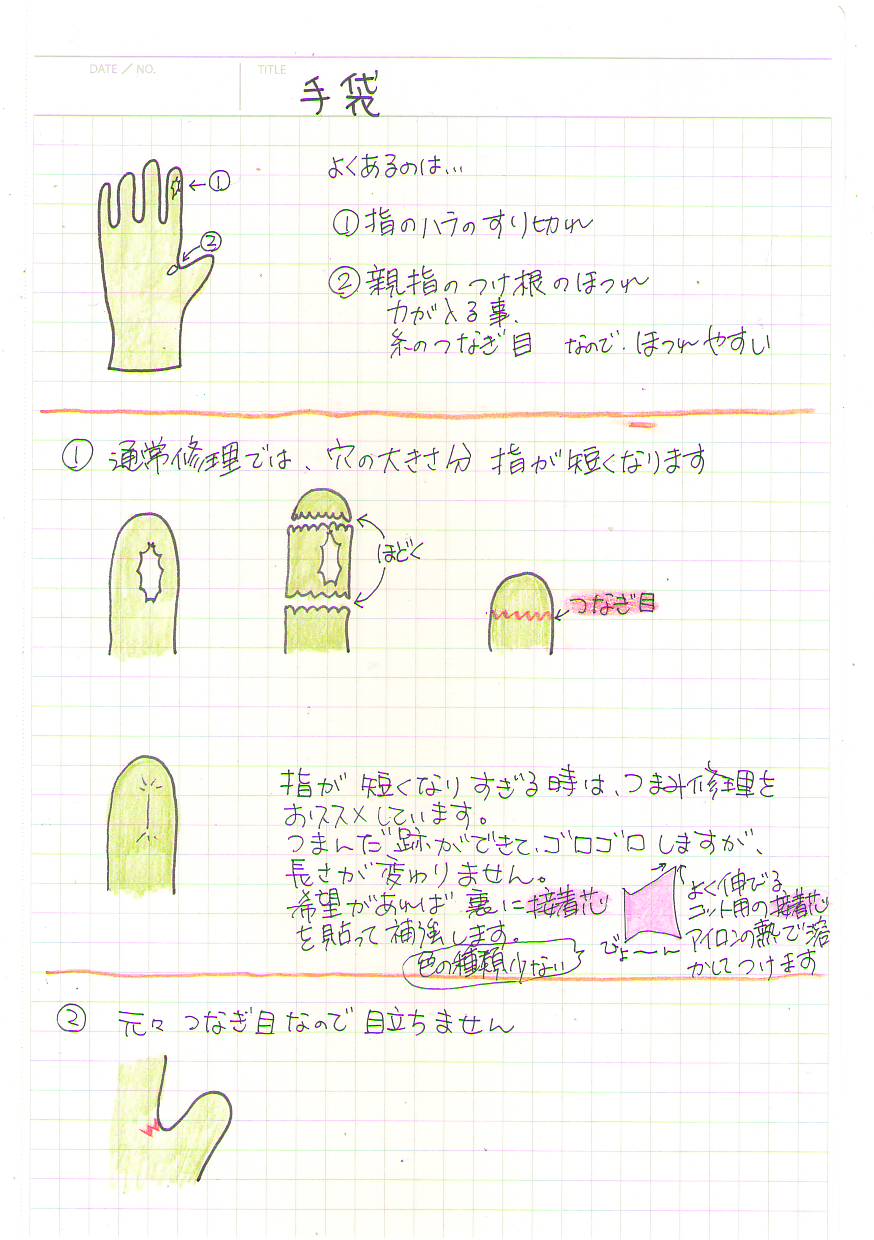 DATE / NO.
TITLE
手袋
①
②
よくあるのは…
①指のハラのすり切れ
②親指のつけ根のほつれ
力が入る事、
糸のつなぎ目 なので、ほつれやすい
① 通常修理では、穴の大きさ分 指が短くなります
ほどく
つなぎ目
指が短くなりすぎる時は、つまみ修理を
おススメしています。
つまんだ跡ができて、ゴロゴロしますが、
長さが変わりません。
希望があれば裏に接着芯
を貼って補強します。
色の種類少ない
びよ〜ん
よく伸びる
ニット用の接着芯
アイロンの熱で溶
かしてつけます
② 元々つなぎ目なので目立ちません